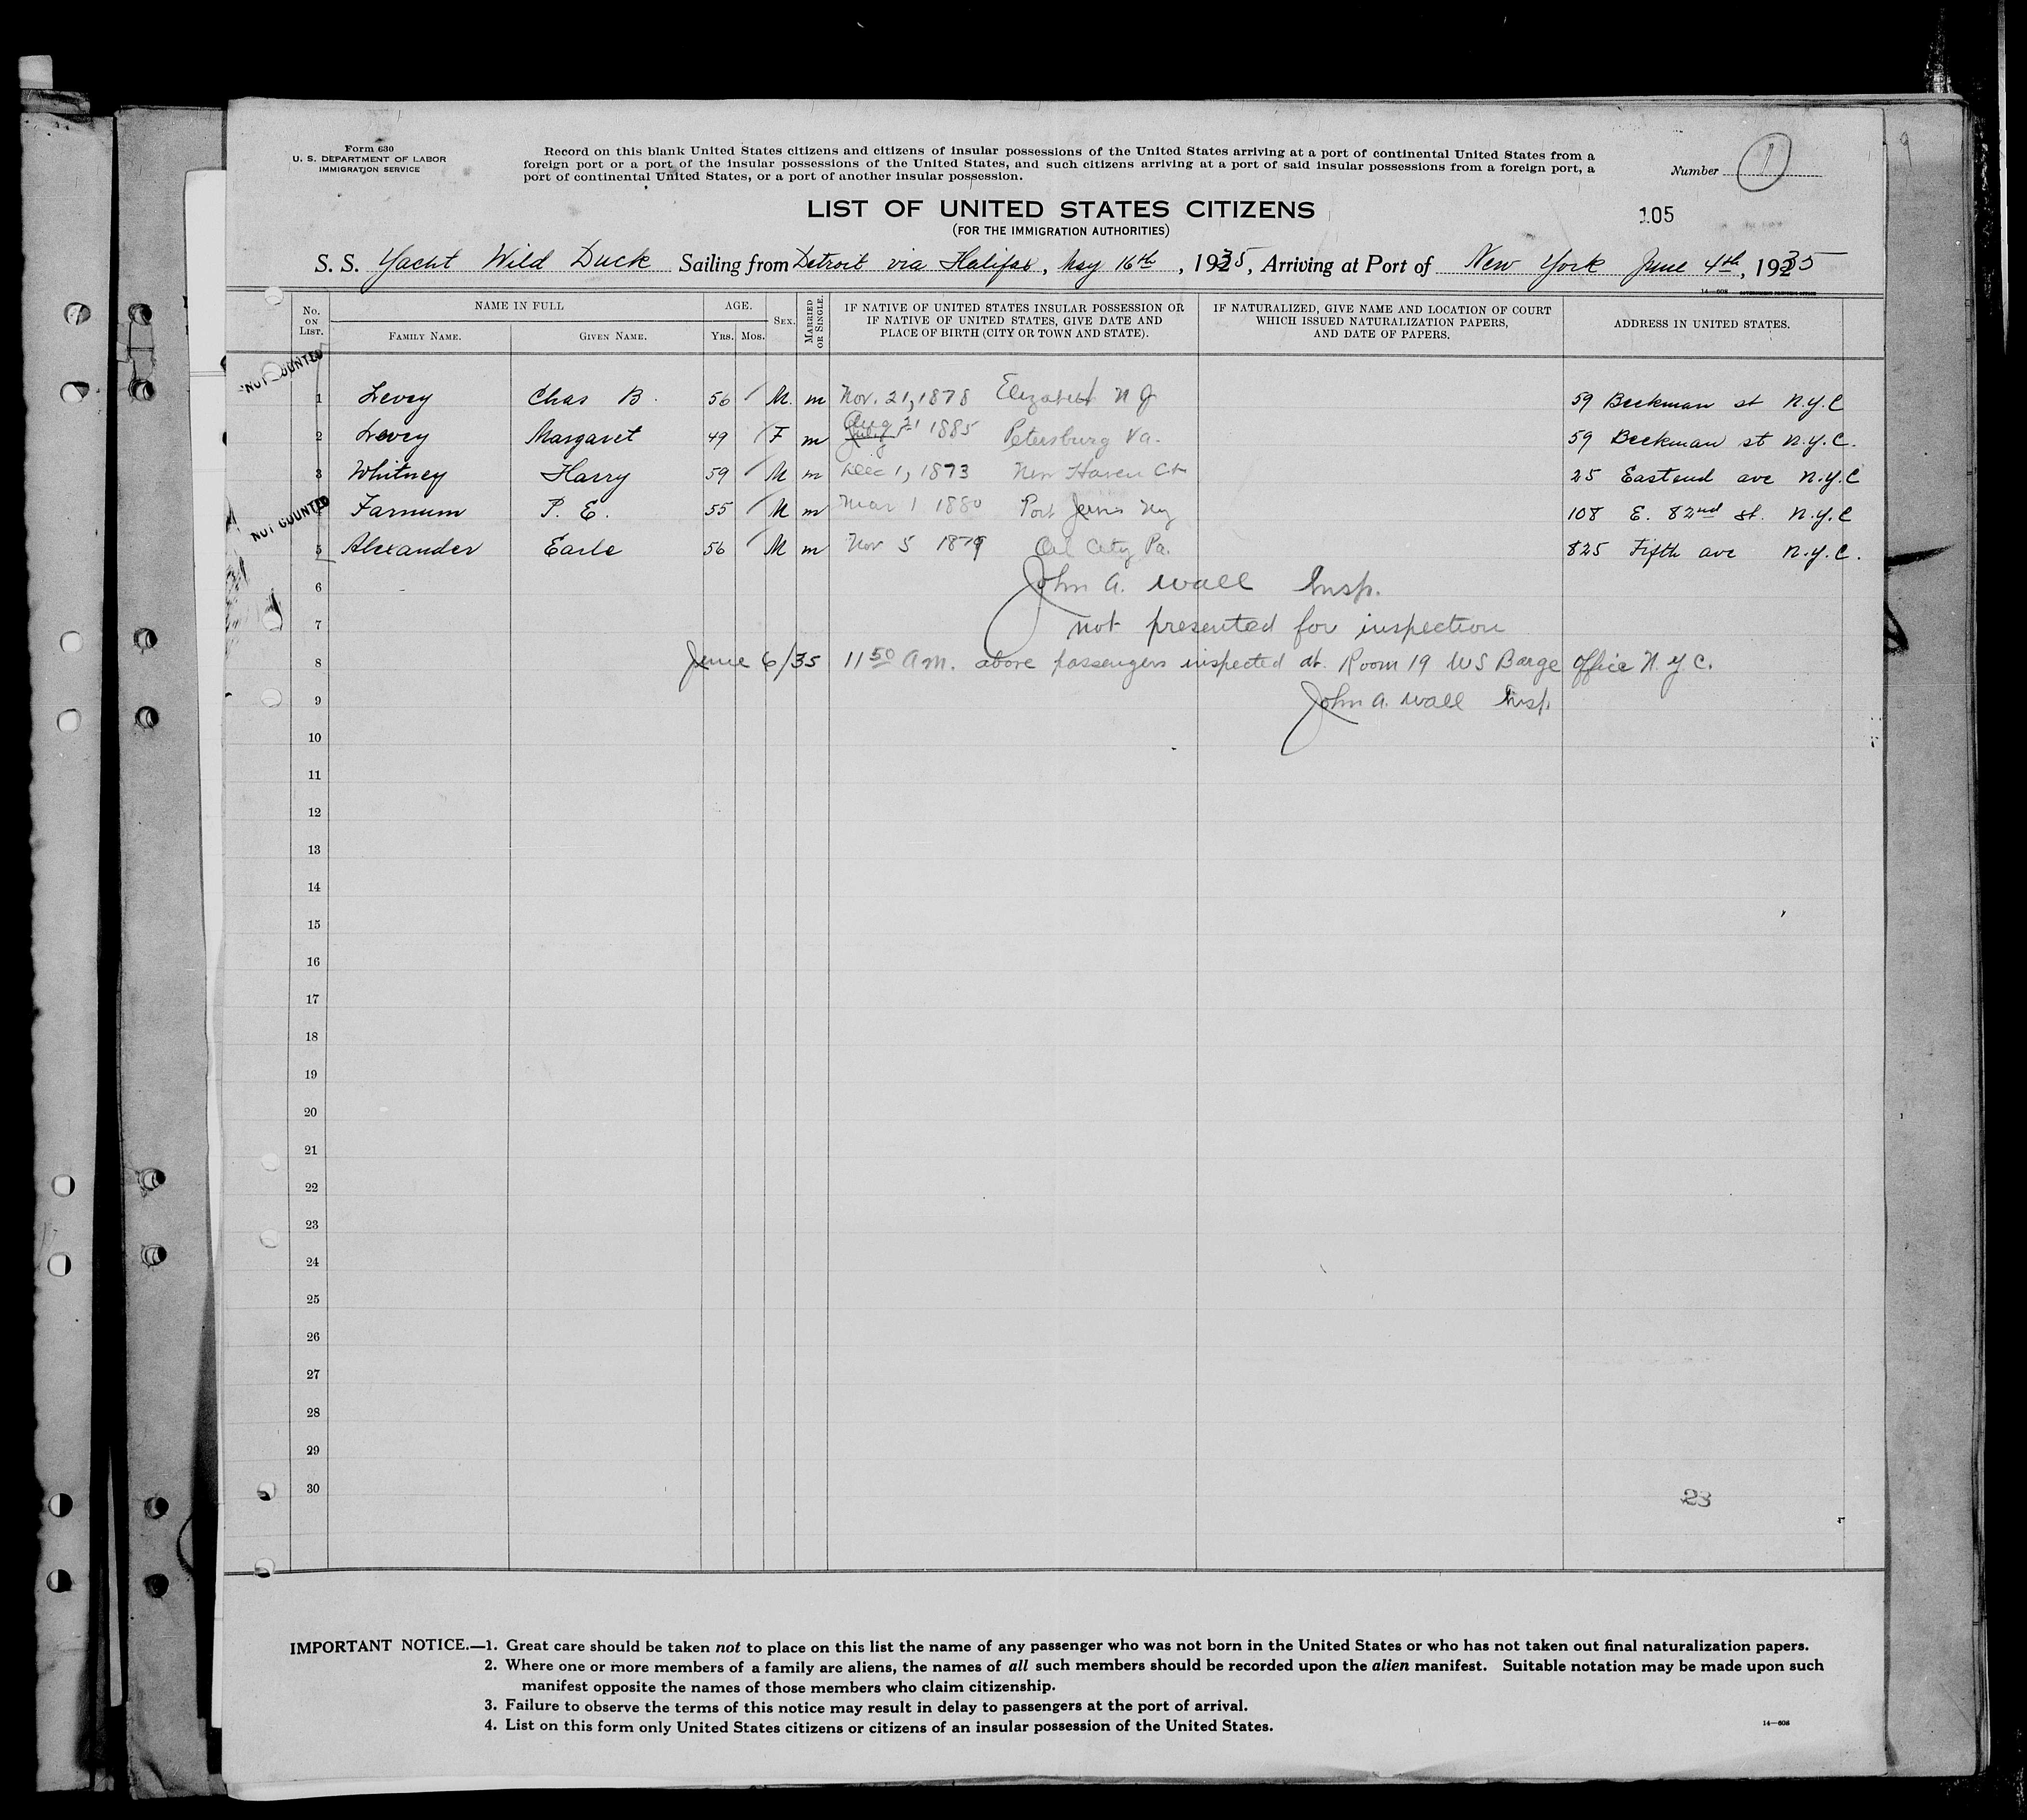 Form 630
U. S. DEPARTMENT OF LABOR
IMMIGRATION SERVICE
Record on this blank United States citizens and citizens of insular possessions of the United States arriving at a port of continental United States from a
foreign port or a port of the insular possessions of the United States, and such citizens arriving at a port of said insular possessions from a foreign port, a
port of continental United States, or a port of another insular possession.
Number 1
LIST OF UNITED STATES CITIZENS
105
(FOR THE IMMIGRATION AUTHORITIES)
S. S. Yacht Wild Duck Sailing from Detroit via Halifax, May 16th, 1935, Arriving at Port of New York June 4th, 1935
14—608 GOVERNMENT PRINTING OFFICE
No. ON LIST. NAME IN FULL FAMILY NAME. GIVEN NAME. AGE. YRS. MOS. SEX. MARRIED OR SINGLE. IF NATIVE OF UNITED STATES INSULAR POSSESSION OR IF NATIVE OF UNITED STATES, GIVE DATE AND PLACE OF BIRTH (CITY OR TOWN AND STATE). IF NATURALIZED, GIVE NAME AND LOCATION OF COURT WHICH ISSUED NATURALIZATION PAPERS, AND DATE OF PAPERS. ADDRESS IN UNITED STATES.
NOT COUNTED
1 Levey Chas B. 56 M. m Nov. 21, 1878 Elizabeth N J 59 Beekman st N.Y.C
2 Levey Margaret 49 F m Aug 1885 Petersburg Va. 59 Beekman st N.Y.C.
3 Whitney Harry 59 M m Dec 1, 1873 New Haven Ct 25 Eastend ave N.Y.C
NOT COUNTED
Farnum P. E. 55 M m Mar 1 1880 Port Jervis Ny 108 E. 82nd st. N.Y.C
5 Alexander Earle 56 M m Nov 5 1879 Oil City Pa. 825 Fifth ave N.Y.C.
6 John A. Wall Insp.
7 not presented for inspection
8 June 6/35 11 50 AM. above passengers inspected at Room 19 WS Barge office N.Y.C.
9 John A. Wall Insp.
10
11
12
13
14
15
16
17
18
19
20
21
22
23
24
25
26
27
28
29
30
23
IMPORTANT NOTICE.—1. Great care should be taken not to place on this list the name of any passenger who was not born in the United States or who has not taken out final naturalization papers.
2. Where one or more members of a family are aliens, the names of all such members should be recorded upon the alien manifest. Suitable notation may be made upon such
manifest opposite the names of those members who claim citizenship.
3. Failure to observe the terms of this notice may result in delay to passengers at the port of arrival.
4. List on this form only United States citizens or citizens of an insular possession of the United States.
14—608